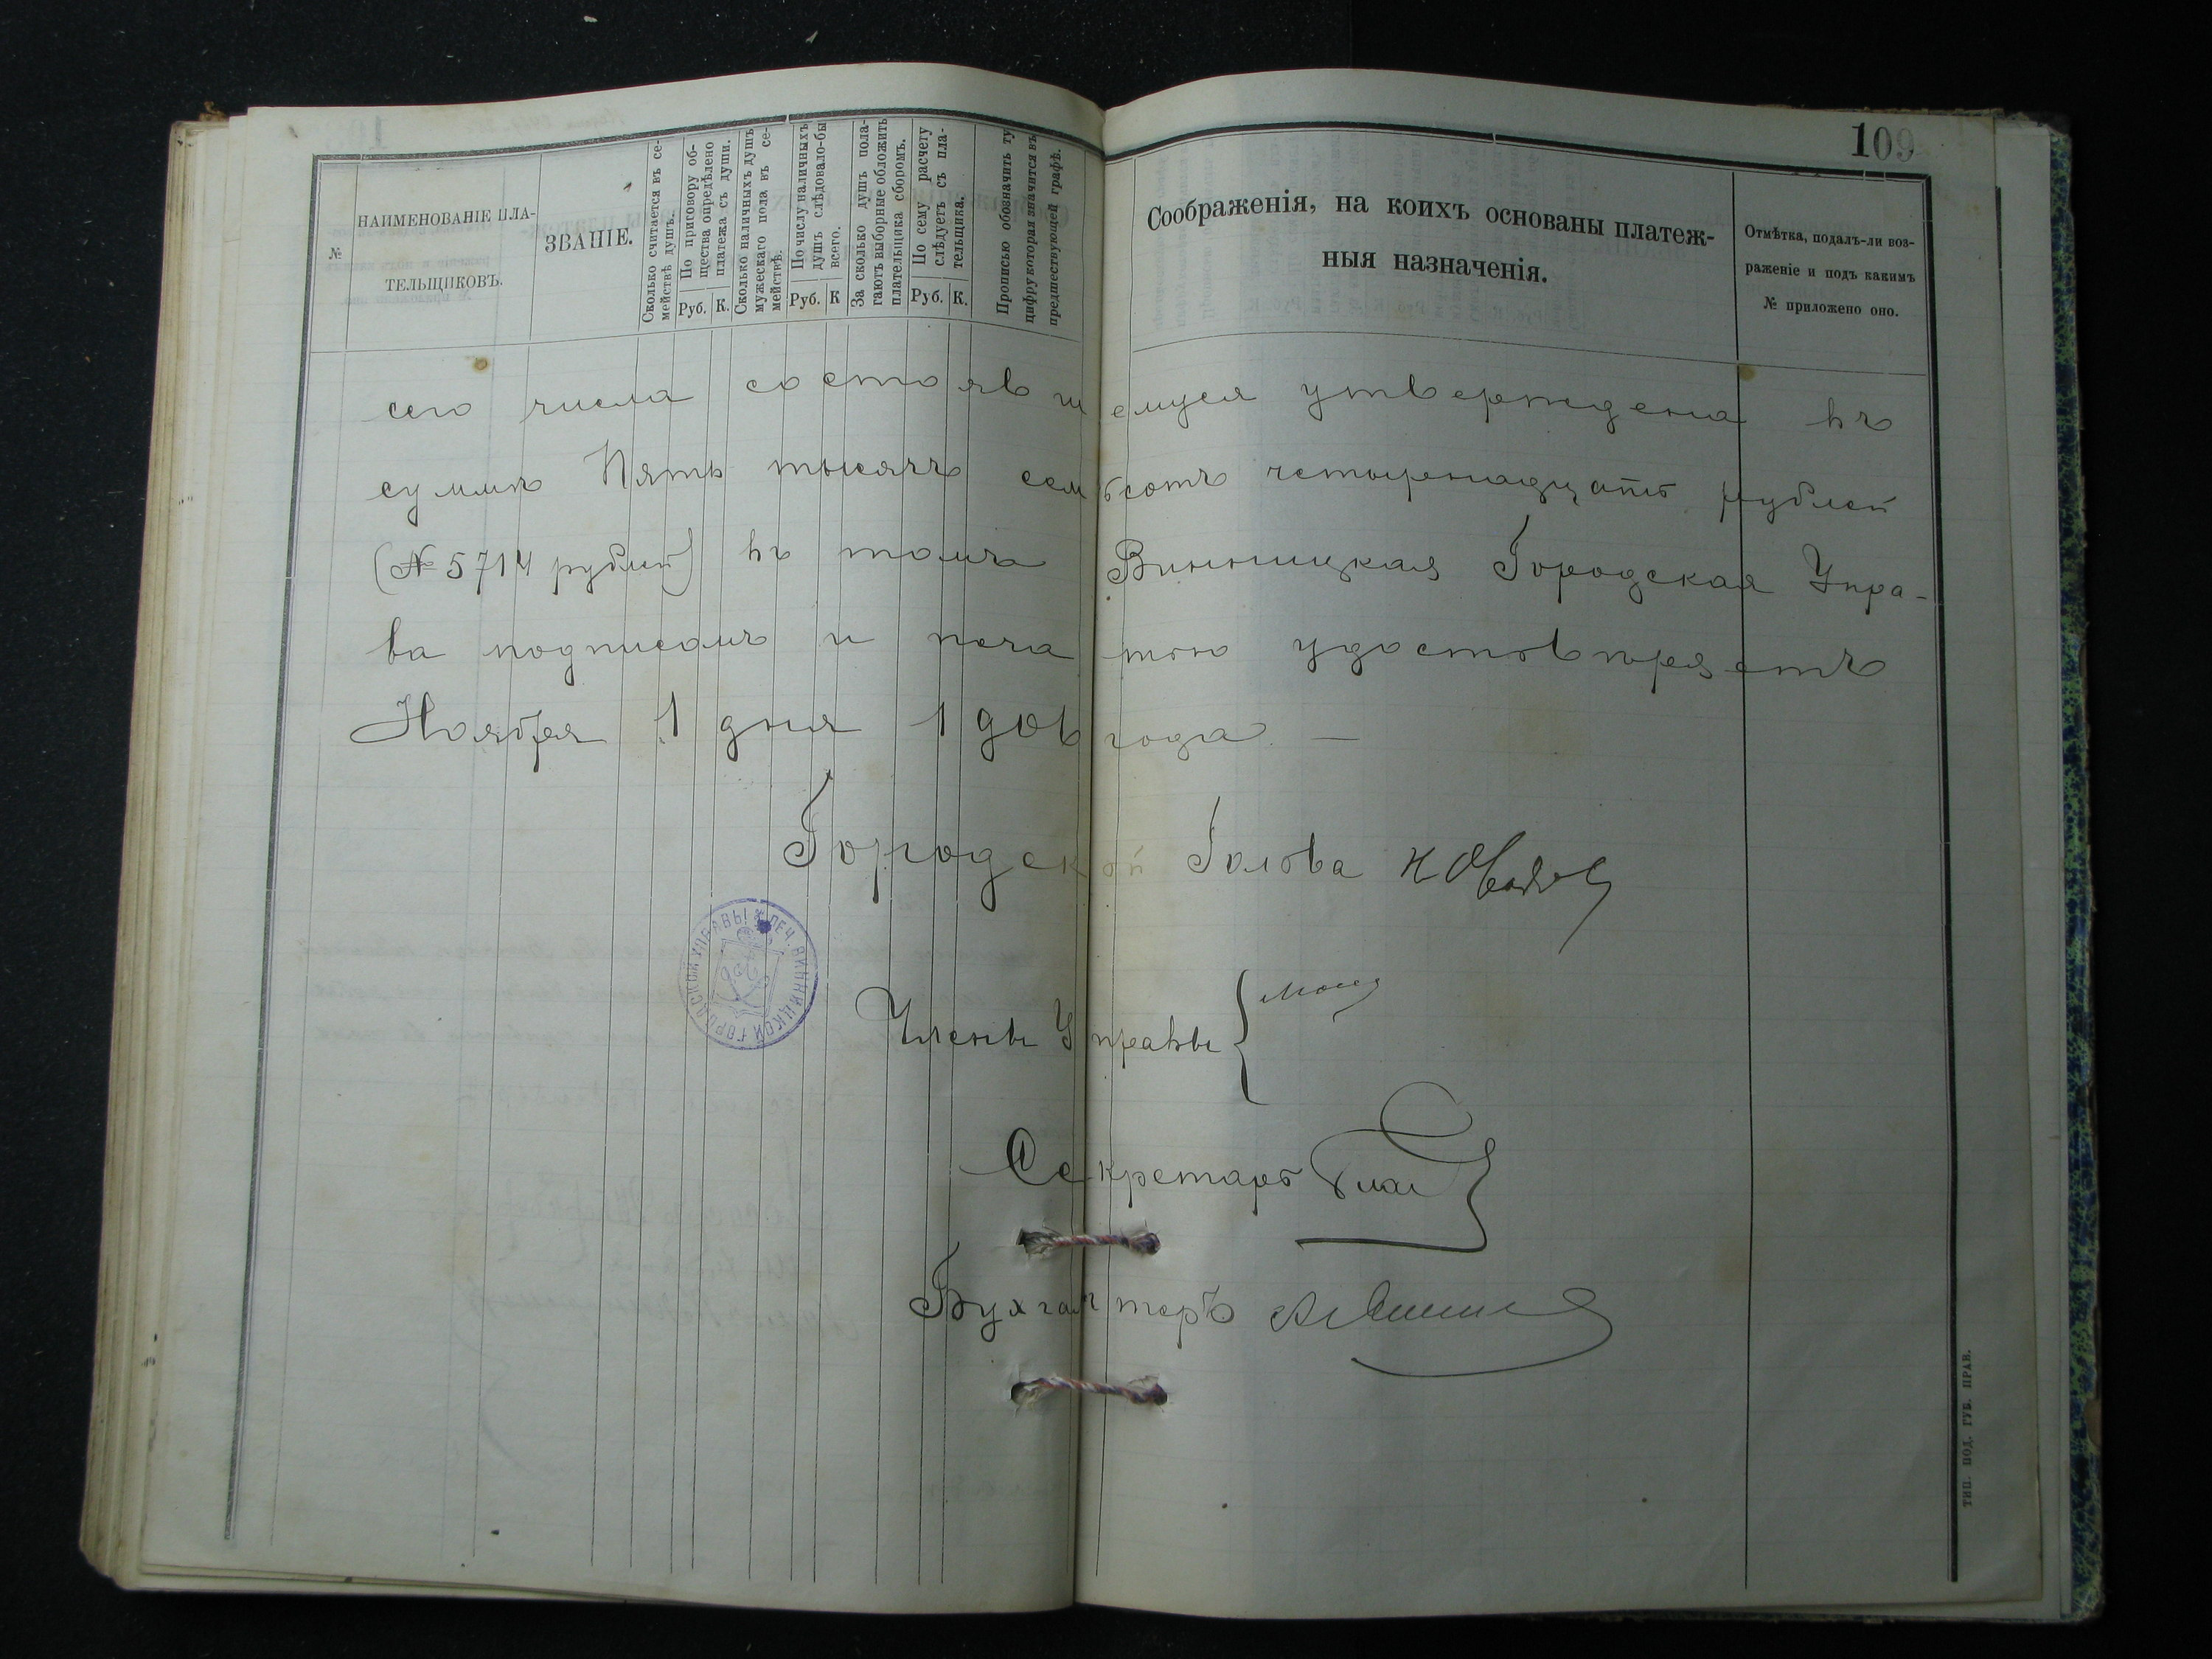 109
№
НАИМЕНОВАНІЕ ПЛА-
ТЕЛЬЩИКОВЪ.
ЗВАНІЕ.
Сколько считается въ се-
мействѣ душъ.
По приговору об-
щества опредѣлено
платежа съ души.
Руб. К.
Сколько наличныхъ душъ
мужескаго пола въ се-
мействѣ.
По числу наличныхъ
душъ слѣдовало-бы
всего.
Руб. К
За сколько душъ пола-
гаютъ выборные обложить
плательщика сборомъ.
По сему расчету
слѣдуетъ съ пла-
тельщика.
Руб. К.
Прописью обозначить ту
цифру которая значится въ
предшествующей графѣ.
Соображенія, на коихъ основаны платеж-
ныя назначенія.
Отмѣтка, подалъ-ли воз-
раженіе и подъ какимъ
№ приложено оно.
сего числа состоявшемуся утверждена въ
суммѣ Пять тысячъ семьсотъ четырнадцать рублей
(№ 5714 рублей) въ томъ Винницкая Городская Упра-
ва подписомъ и печатью удостовѣряетъ
Ноября 1 дня 190 года. —
Городской Голова
ПЕЧ. ВИННИЦКОЙ ГОРОДСКОЙ УПРАВЫ
Члены Управы
Секретарь
Бухгалтеръ
ТИП. ПОД. ГУБ. ПРАВ.